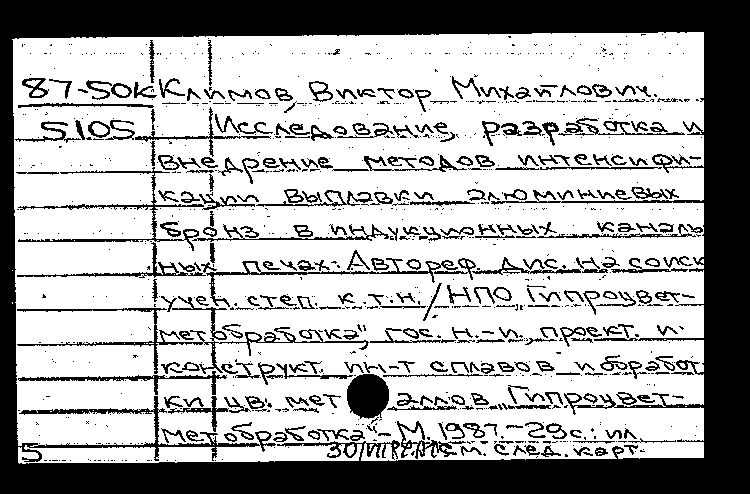 87-50к Климов, Виктор Михайлович.
5105 Исследование, разработка и
внедрение методов интенсифи-
кации выплавки алюминиевых
бронз в индукционных каналь
ных печах: Автореф. дис. на соиск
учен. степ. к.т.н. / НПО "Гипроцвет-
метобработка", гос. н.-и., проект. и
конструкт. ин-т сплавов и обработ
ки цв. металлов "Гипроцвет-
метобработка" - М., 1987. - 29 с.: ил.
5 см. след. карт.